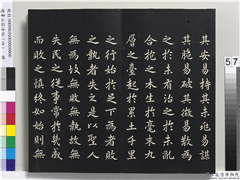 其安易持其未兆易謀
其脆易破其微易散為
之於未有治之於未亂
合抱之木生於毫末九
層之臺起於累土千里
之行始於足下為者敗
之執者失之是以聖人
無為故無敗無執故無
失民之從事常於幾成
而敗之慎終如始則無
57